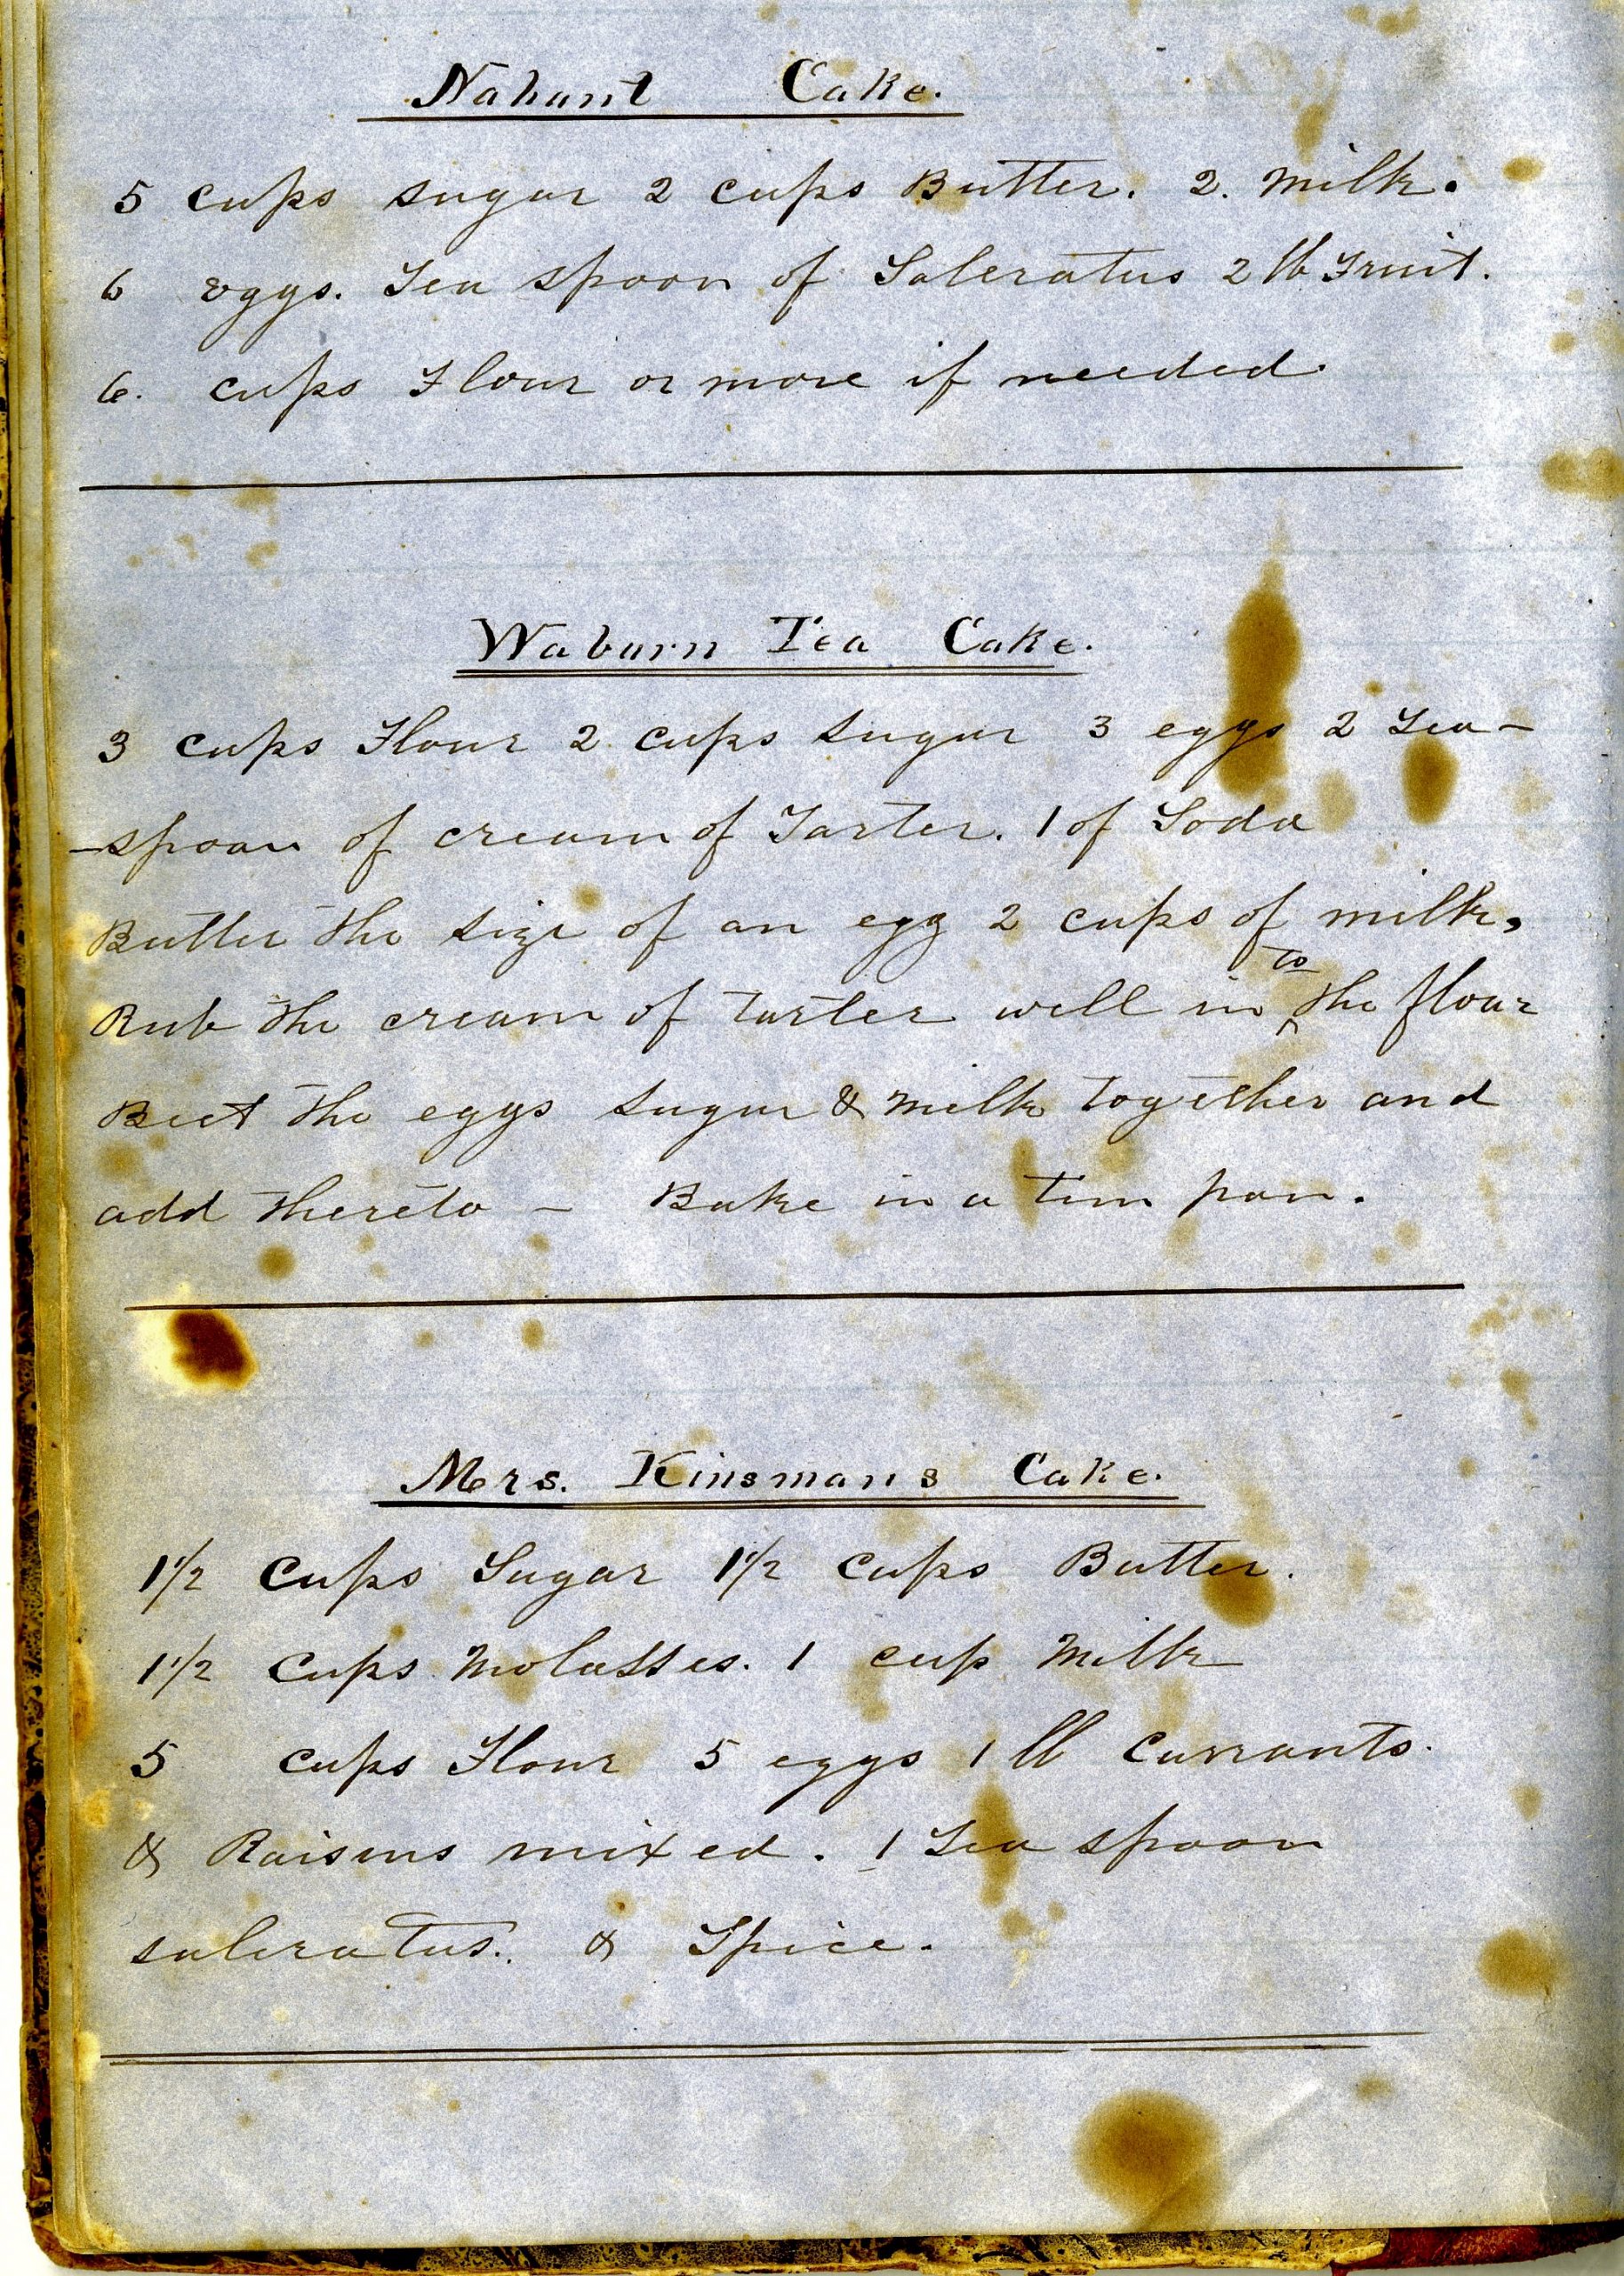 Nahant Cake.
5 cups sugar 2 cups Butter. 2. Milk.
6 eggs. Tea spoon of Saleratus 2 lb Fruit.
6. cups Flour or more if needed.
Waburn Tea Cake.
3 cups Flour 2 cups sugar 3 eggs 2 Tea-
-spoon of cream of Tarter. 1 of Soda
Butter the size of an egg 2 cups of milk,
Rub the cream of tarter well in to the flour
Beet the eggs sugar & milk together and
add thereto - Bake in a tin pan.
Mrs. Kinsmans Cake.
1 1/2 cups Sugar 1 1/2 cups Butter.
1 1/2 cups Molasses. 1 cup Milk
5 cups Flour 5 eggs 1 lb Currants.
& Raisins mixed. 1 Tea spoon
saleratus. & Spice.